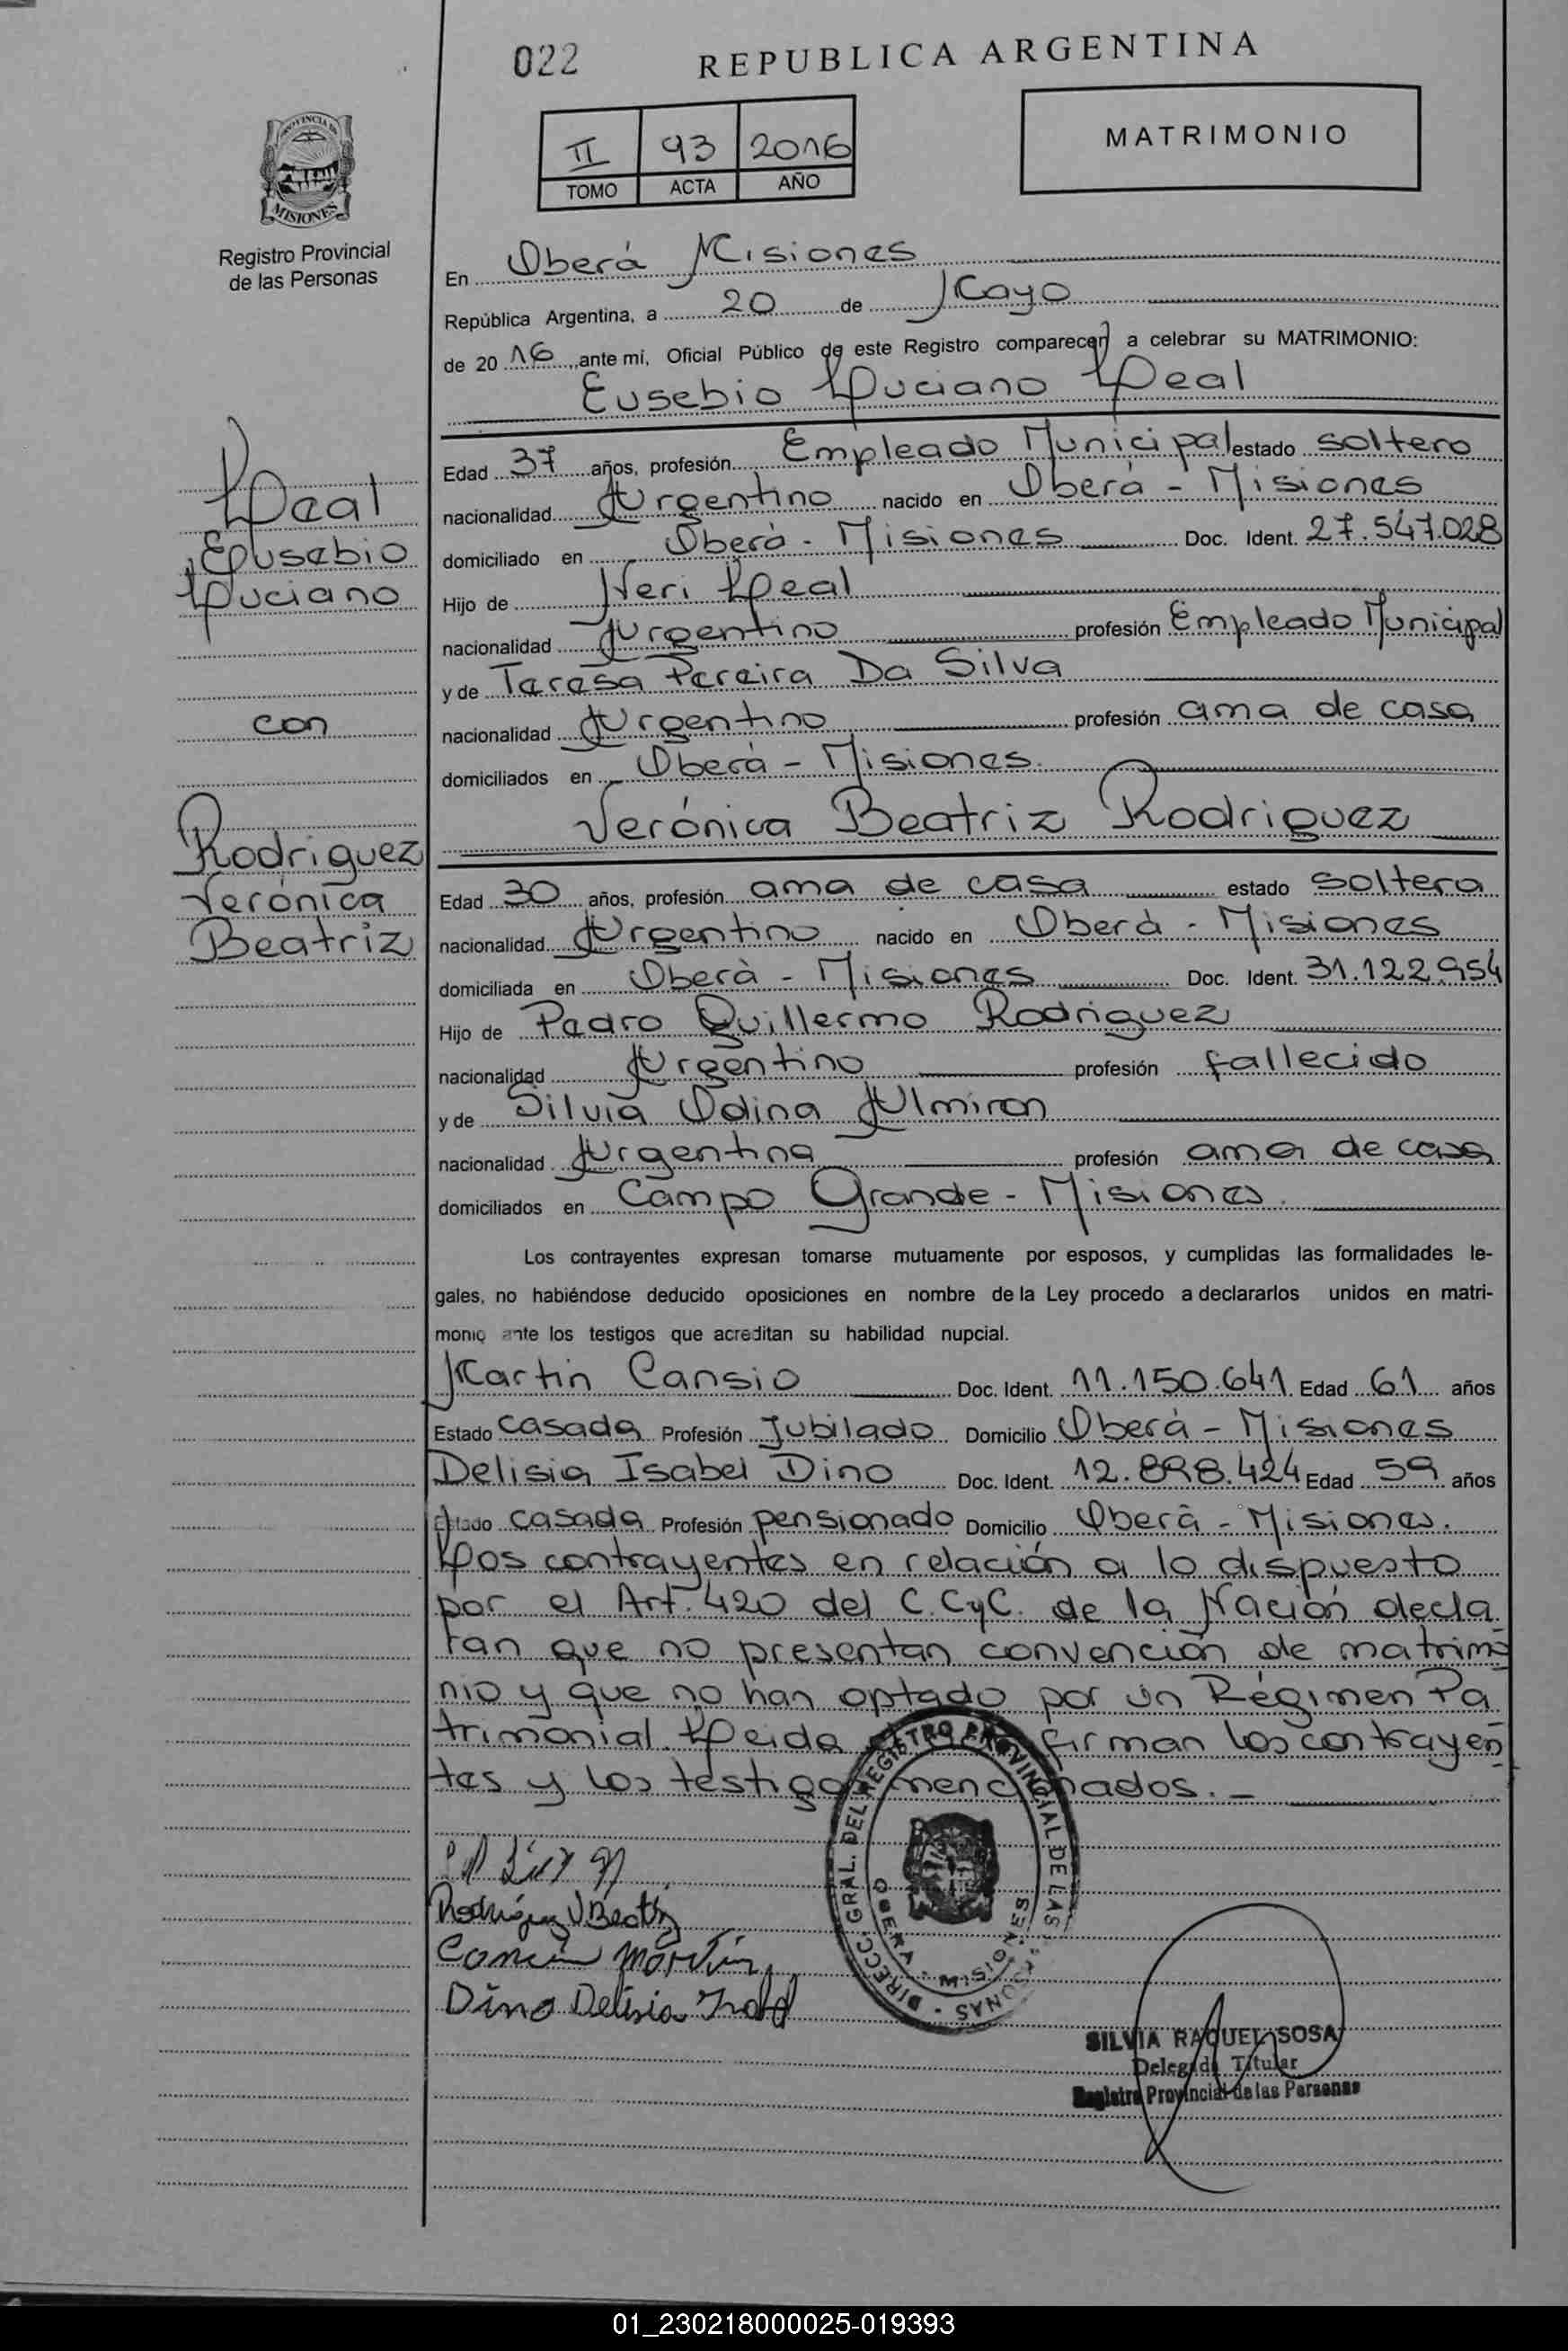 022
REPUBLICA ARGENTINA
II 93 2016
TOMO ACTA AÑO
MATRIMONIO
PROVINCIA DE
MISIONES
Registro Provincial
de las Personas
En Oberá Misiones
República Argentina, a 20 de Mayo
de 2016, ante mí, Oficial Público de este Registro comparecen a celebrar su MATRIMONIO:
Eusebio Luciano Leal
Edad 37 años, profesión Empleado Municipal estado soltero
nacionalidad Argentino nacido en Oberá - Misiones
domiciliado en Oberá - Misiones Doc. Ident. 27.547.028
Hijo de Neri Leal
nacionalidad Argentino profesión Empleado Municipal
y de Teresa Pereira Da Silva
nacionalidad Argentino profesión ama de casa
domiciliados en Oberá - Misiones.
Leal
Eusebio
Luciano
con
Rodriguez
Verónica
Beatriz
Verónica Beatriz Rodriguez
Edad 30 años, profesión ama de casa estado soltera
nacionalidad Argentino nacido en Oberá - Misiones
domiciliada en Oberá - Misiones Doc. Ident. 31.122.954
Hijo de Pedro Guillermo Rodriguez
nacionalidad Argentino profesión fallecido
y de Silvia Odina Almiron
nacionalidad Argentina profesión ama de casa
domiciliados en Campo Grande - Misiones.
Los contrayentes expresan tomarse mutuamente por esposos, y cumplidas las formalidades le-
gales, no habiéndose deducido oposiciones en nombre de la Ley procedo a declararlos unidos en matri-
monio ante los testigos que acreditan su habilidad nupcial.
Martin Cansio Doc. Ident. 11.150.641 Edad 61 años
Estado casada Profesión Jubilado Domicilio Oberá - Misiones
Delisia Isabel Dino Doc. Ident. 12.898.424 Edad 59 años
Estado casada Profesión pensionado Domicilio Oberá - Misiones.
Los contrayentes en relación a lo dispuesto
por el Art. 420 del C.CyC. de la Nación decla
ran que no presentan convención de matrimo
nio y que no han optado por un Régimen Pa
trimonial. Leida firman los contrayen
tes y los testigos mencionados. -
Rodriguez V Beatriz
Martín
Dino Delisia Isabel
DIRECC. GRAL. DEL REGISTRO PROVINCIAL DE LAS PERSONAS
OBERA - MISIONES
SILVIA RAQUEL SOSA
Delegada Titular
Registro Provincial de las Personas
01_230218000025-019393